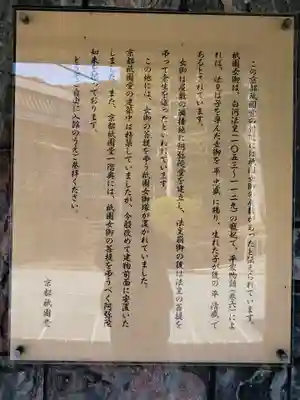 この京都祇園堂の付近には祇園女御の屋敷があったと伝えられています。
祇園女御は、白河法皇(一〇五三～一一二九)の寵妃で、平家物語(巻六)によ
れば、法皇は子を孕んだ女御を平忠盛に賜り、生れた子が後の平清盛で
あるとされています。
女御は屋敷の隣接地に阿弥陀堂を建立し、法皇崩御の後は法皇の菩提を
弔って余生を送ったといわれています。
この地には、女御の菩提を弔う祇園女御塚が置かれていました。
京都祇園堂の建築中は移築していましたが、今般改めて建物前面に安置いた
しました。また、京都祇園堂一階奥には、祇園女御の菩提を弔うべく阿弥陀
如来を祀っております。
どうぞご自由に入館のうえご参拝ください。
京都祇園堂